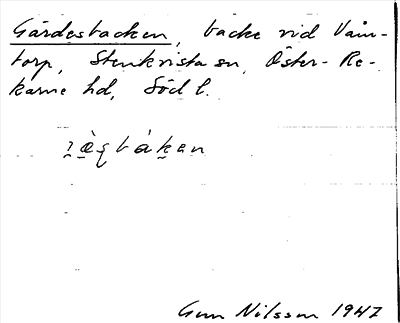 Gärdesbacken, backe vid Väin-
torp, Stenkvista sn, Öster-Re-
karne hd, Södl.
Gun Nilsson 1947